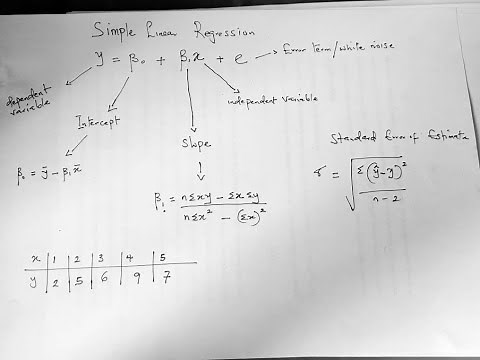 Simple Linear Regression
y = β₀ + β₁x + e → Error term/white noise
dependent variable
independent variable
Intercept
Slope
β₀ = ȳ − β₁x̄
β₁ = nΣxy − Σx Σy / nΣx² − (Σx)²
Standard Error of Estimate
σ = √ Σ(ŷ−y)² / n−2
x | 1 | 2 | 3 | 4 | 5
y | 2 | 5 | 6 | 9 | 7